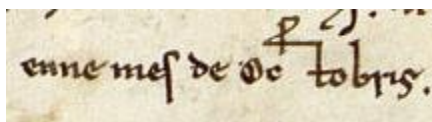 enne mes de Octobris.